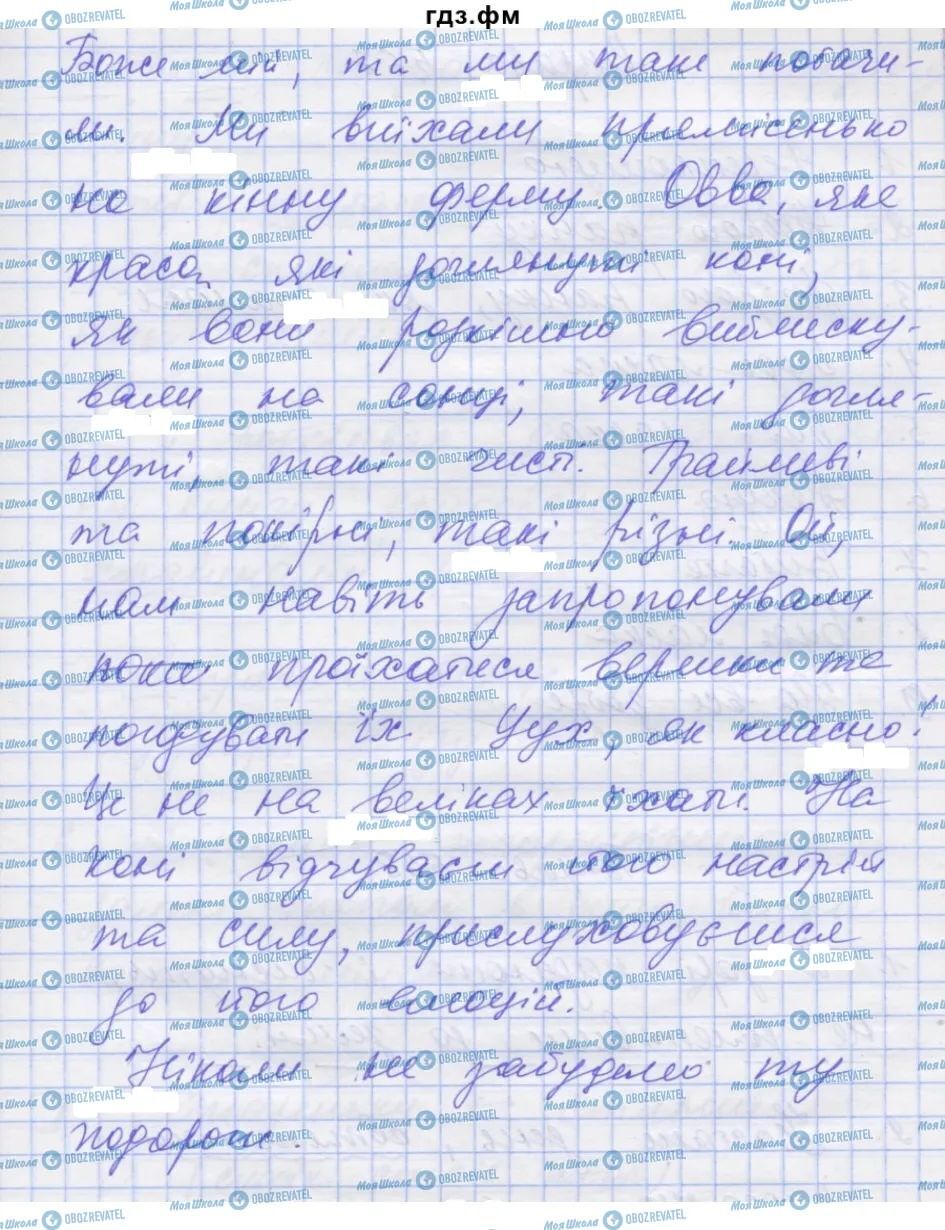 гдз.фм
Боже мій, та ми таке побачи-
ли. Ми виїхали прямісінько
на кінну ферму. Овва, яка
краса, які доглянуті коні,
як вони розкішно виблиску-
вали на сонці, такі догля-
нуті, такі чисті. Грайливі
та покірні, такі різні. Ой,
нам навіть запропонували
проїхатися верхи та
погодувати їх. Ууух, як класно!
Це не на веліках їхати. На
коні відчуваєш його настрій
та силу, прислуховуєшся
до його емоцій.
Ніколи не забудемо ту
подорож.
Моя Школа OBOZREVATEL